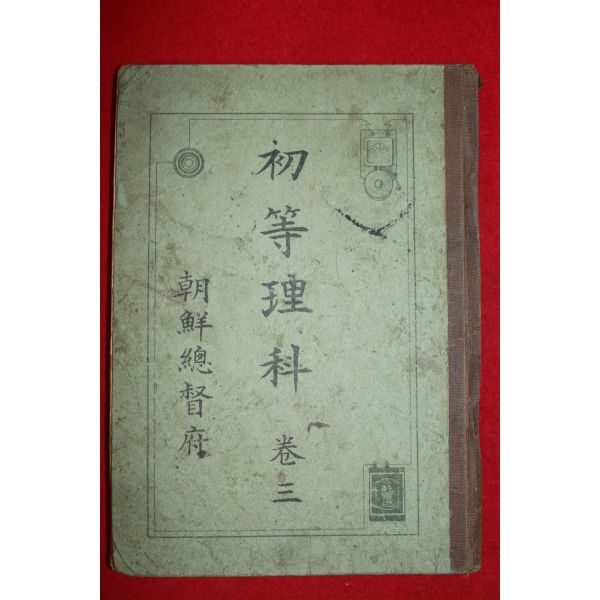 初等理科 卷三
朝鮮總督府